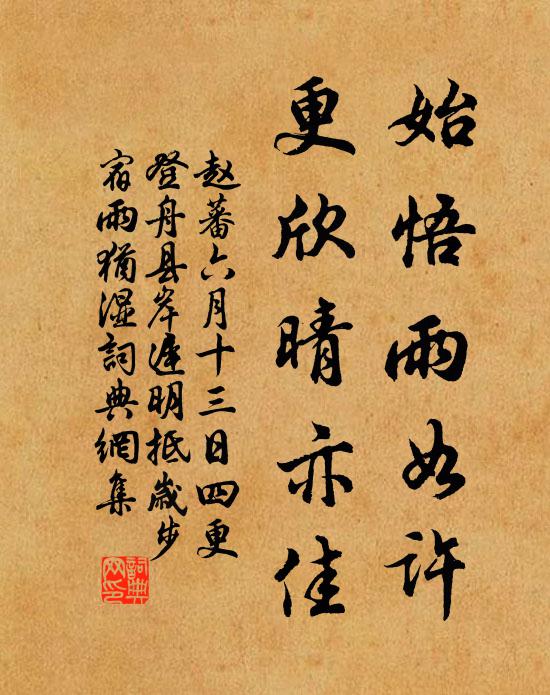 始悟雨如许
更欣晴亦佳
赵蕃六月十三日四更
登舟县岸迟明抵岁步
宿雨犹湿词典網集
詞典網印